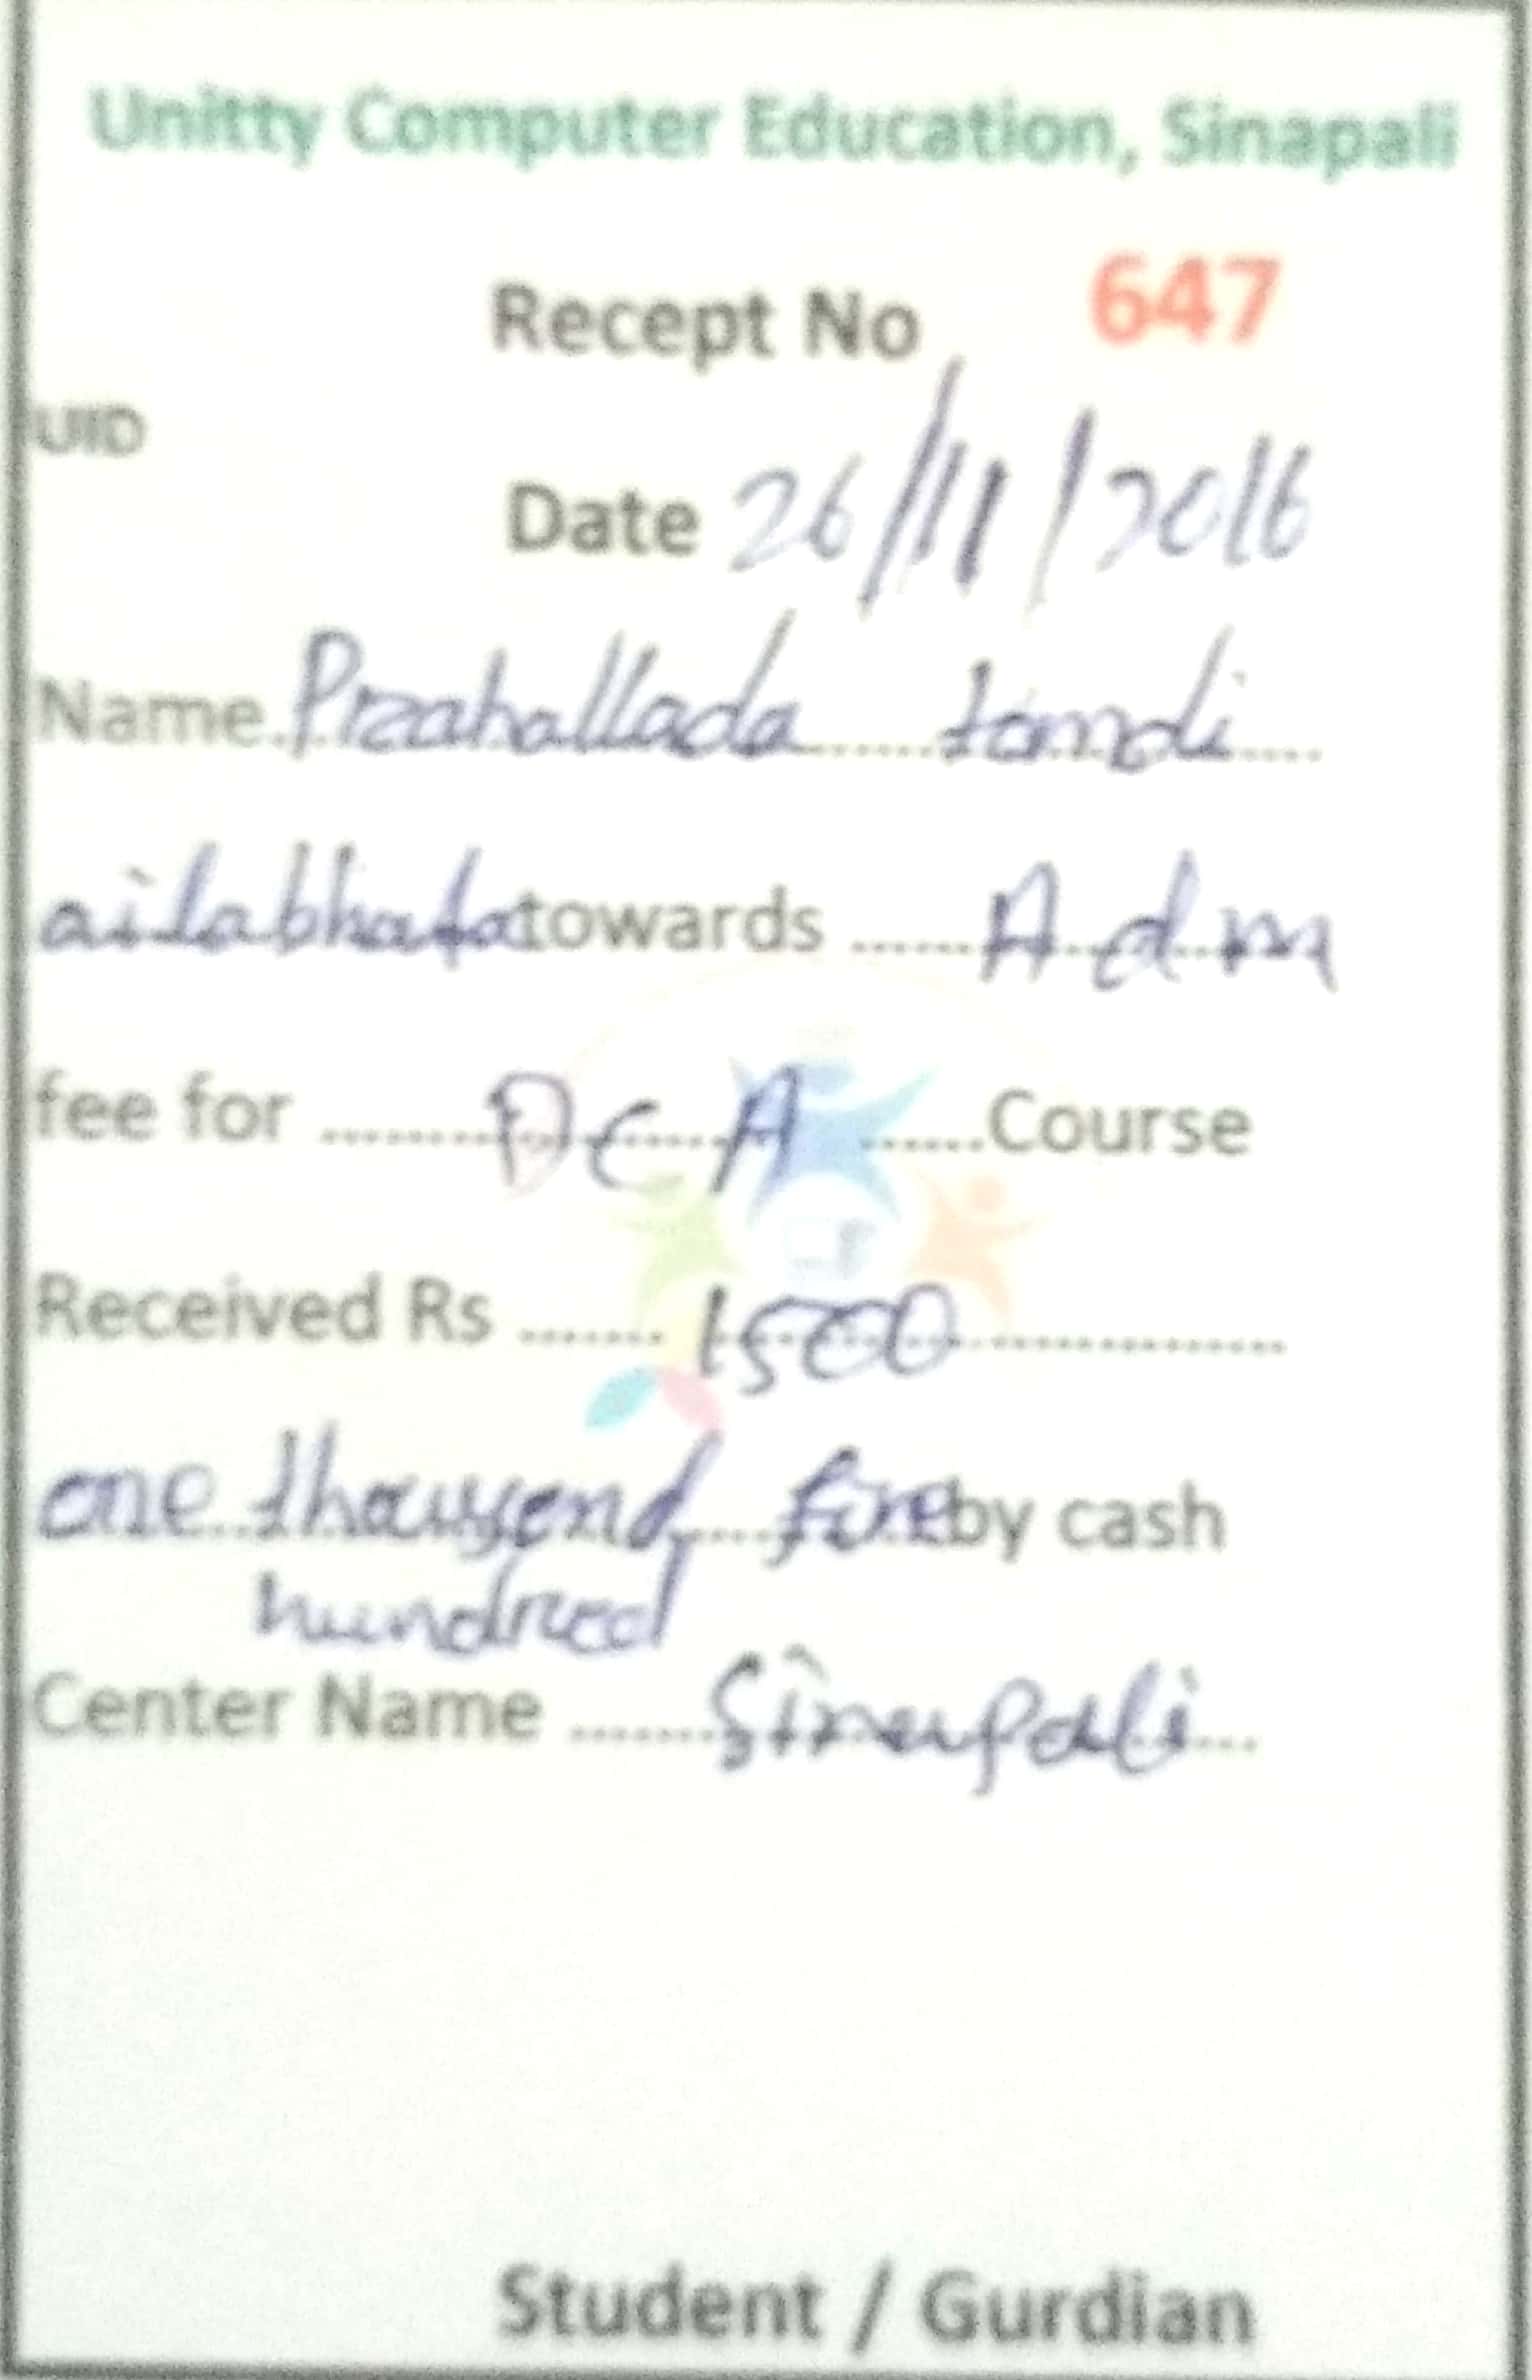 Unitty Computer Education, Sinapali
Recept No 647
UID
Date 26/11/2016
Name Praahallada tamdi
ailabhata towards Adm
fee for DCA Course
Received Rs 1500
one thousend five by cash
hundred
Center Name Sinapali
Student / Gurdian